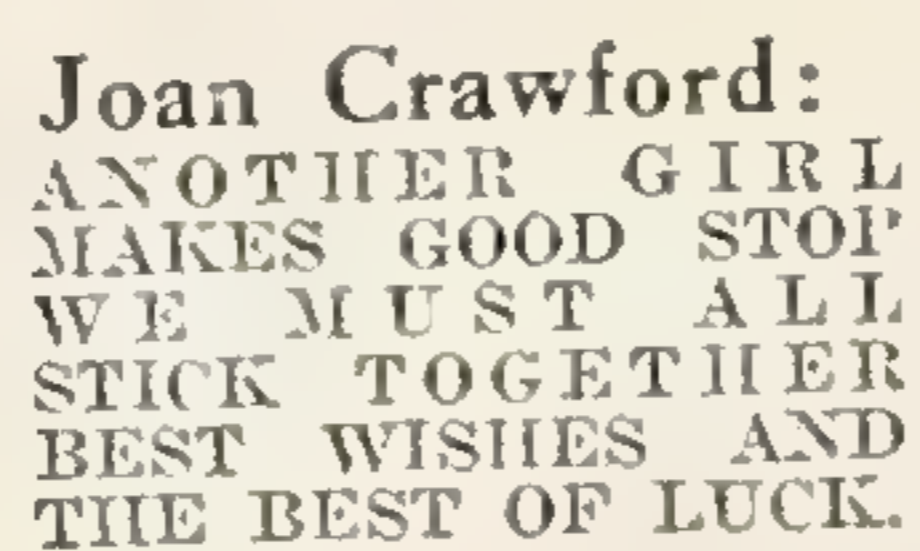 Joan Crawford:
ANOTHER GIRL
MAKES GOOD STOP
WE MUST ALL
STICK TOGETHER
BEST WISHES AND
THE BEST OF LUCK.